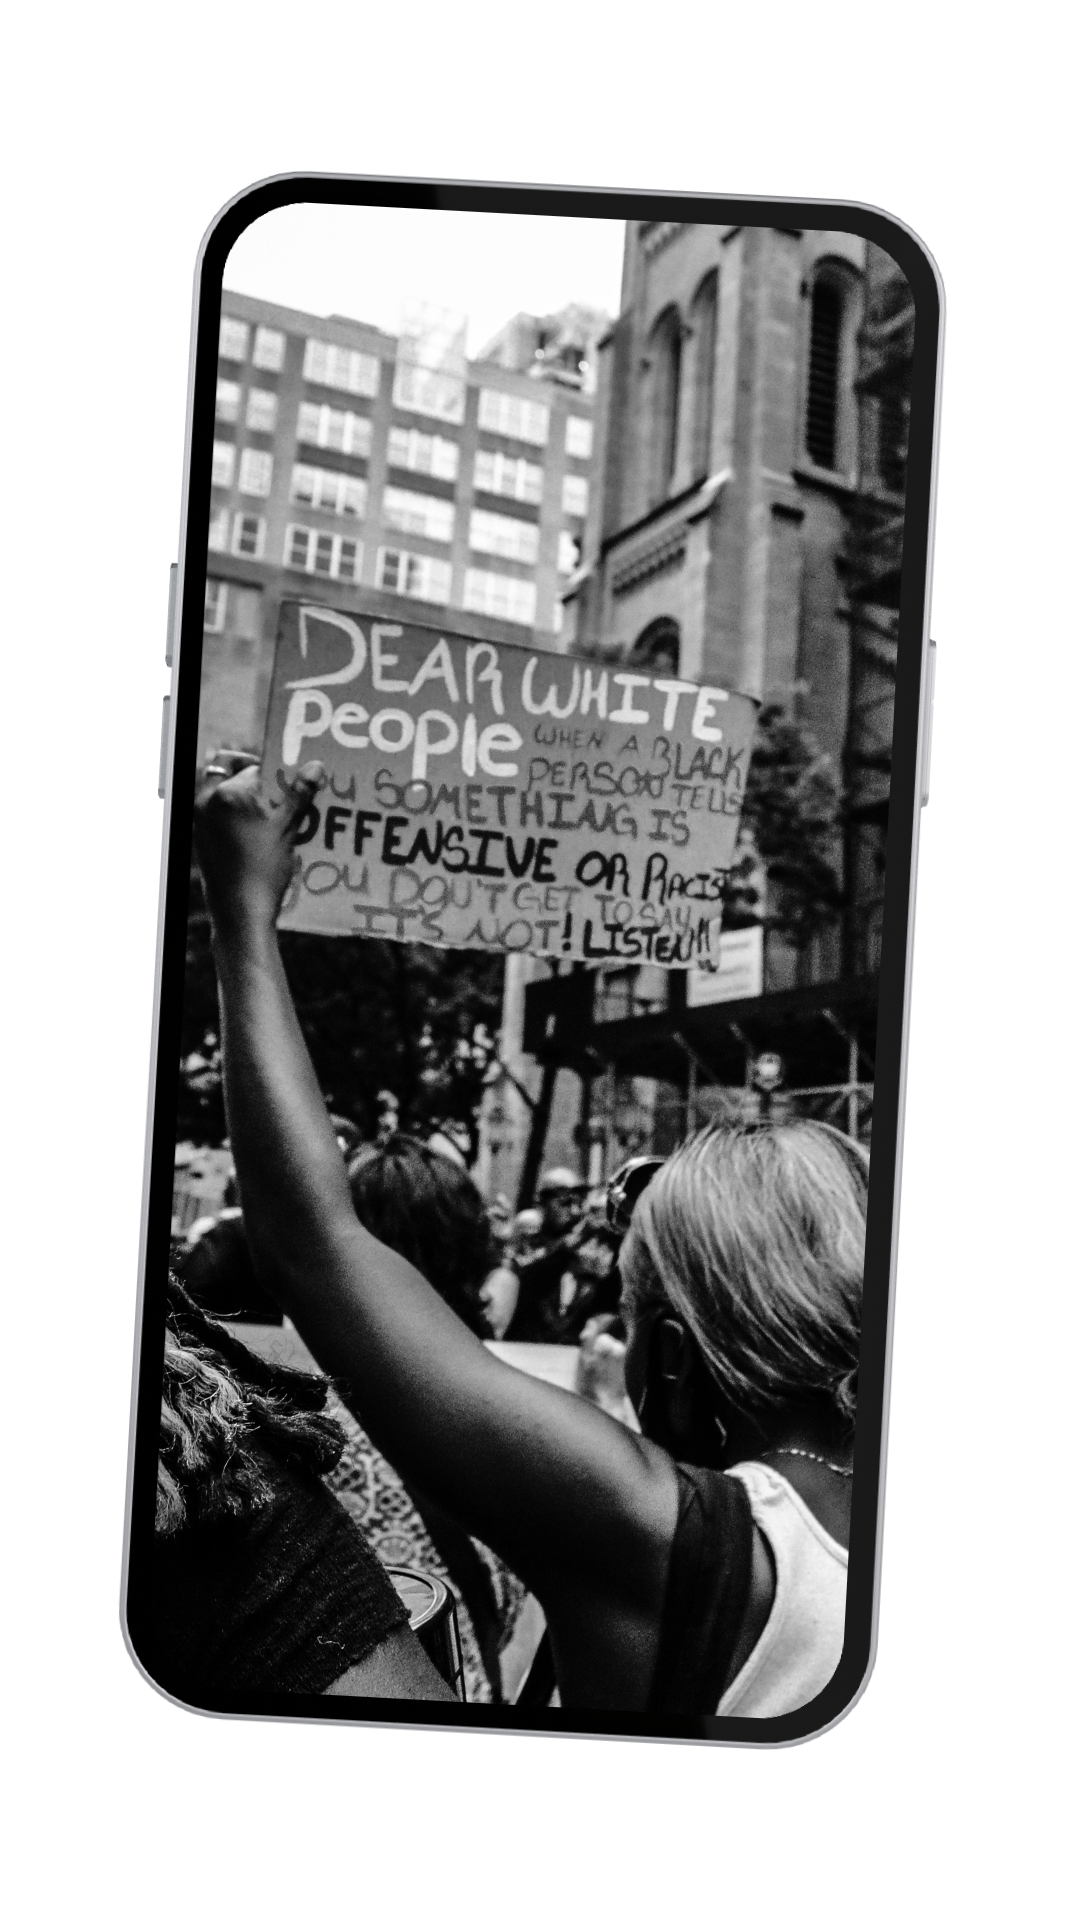 DEAR WHITE
People WHEN A BLACK
PERSON TELLS
YOU SOMETHING IS
OFFENSIVE OR RACIST
YOU DON'T GET TO SAY
IT'S NOT! LISTEN!!